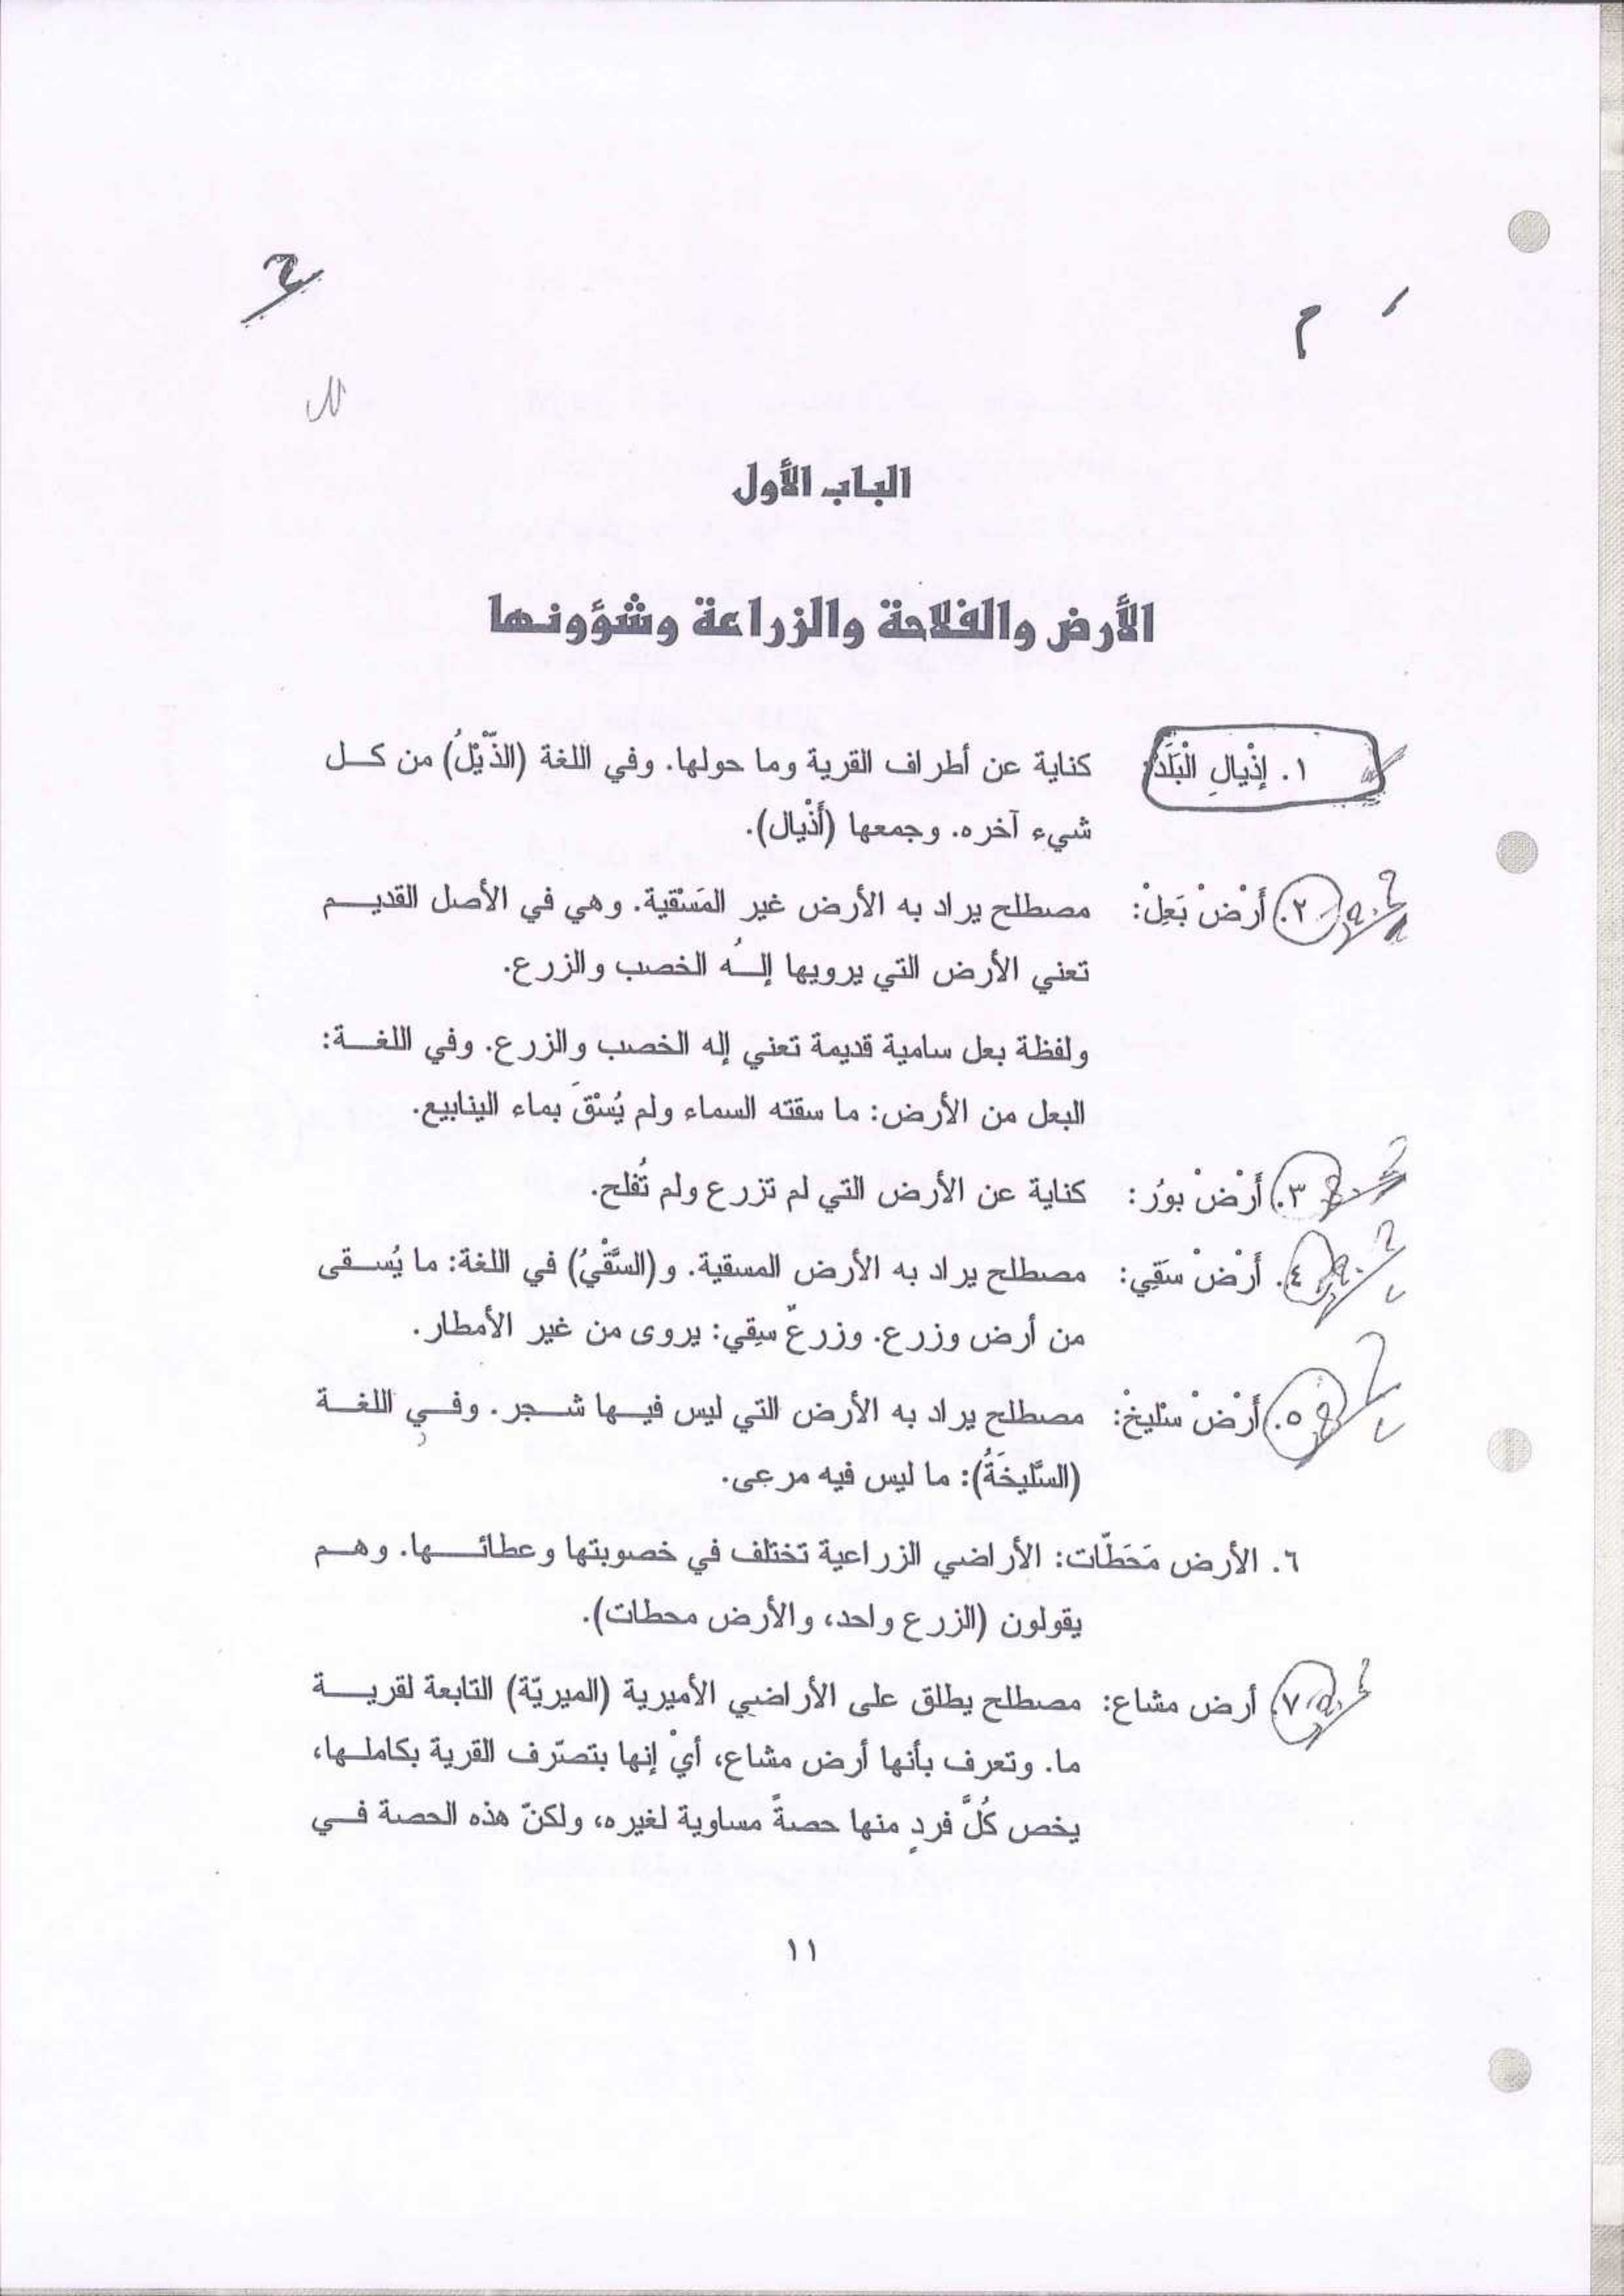 الباب الأول
الأرض والفلاحة والزراعة وشؤونها
١. إذْيالِ الْبَلَدْ: كناية عن أطراف القرية وما حولها. وفي اللغة (الذّيْلُ) من كل
شيء آخره. وجمعها (أَذْيال).
٢. أَرْضْ بَعِلْ: مصطلح يراد به الأرض غير المَسْقية. وهي في الأصل القديم
تعني الأرض التي يرويها إلـهُ الخصب والزرع.
ولفظة بعل سامية قديمة تعني إله الخصب والزرع. وفي اللغة:
البعل من الأرض: ما سقته السماء ولم يُسْقَ بماء الينابيع.
٣. أَرْضْ بورْ: كناية عن الأرض التي لم تزرع ولم تُفلح.
٤. أَرْضْ سَقِي: مصطلح يراد به الأرض المسقية. و(السَّقْيُ) في اللغة: ما يُسقى
من أرض وزرع. وزرعٌ سِقي: يروى من غير الأمطار.
٥. أَرْضْ سْليخْ: مصطلح يراد به الأرض التي ليس فيها شجر. وفي اللغة
(السَّليخَةُ): ما ليس فيه مرعى.
٦. الأرض مَحَطّات: الأراضي الزراعية تختلف في خصوبتها وعطائها. وهم
يقولون (الزرع واحد، والأرض محطات).
٧. أرض مشاع: مصطلح يطلق على الأراضي الأميرية (الميريّة) التابعة لقرية
ما. وتعرف بأنها أرض مشاع، أيْ إنها بتصرّف القرية بكاملها،
يخص كُلَّ فردٍ منها حصةً مساوية لغيره، ولكنّ هذه الحصة في
١١